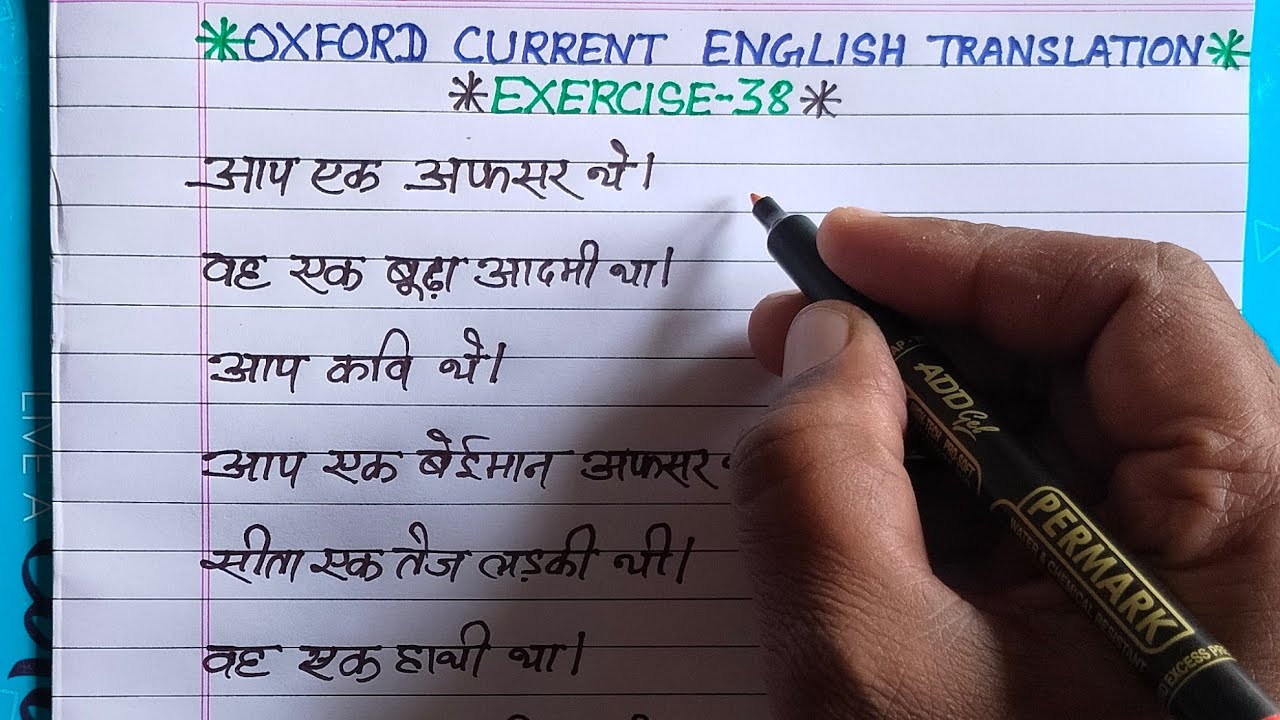 *OXFORD CURRENT ENGLISH TRANSLATION*
*EXERCISE-38*
आप एक अफसर थे।
वह एक बूढ़ा आदमी था।
आप कवि थे।
आप एक बेईमान अफसर
सीता एक तेज लड़की थी।
वह एक हाथी था।
LIVE A
ADD Gel
PERMARK
WATER & CHEMICAL RESISTANT